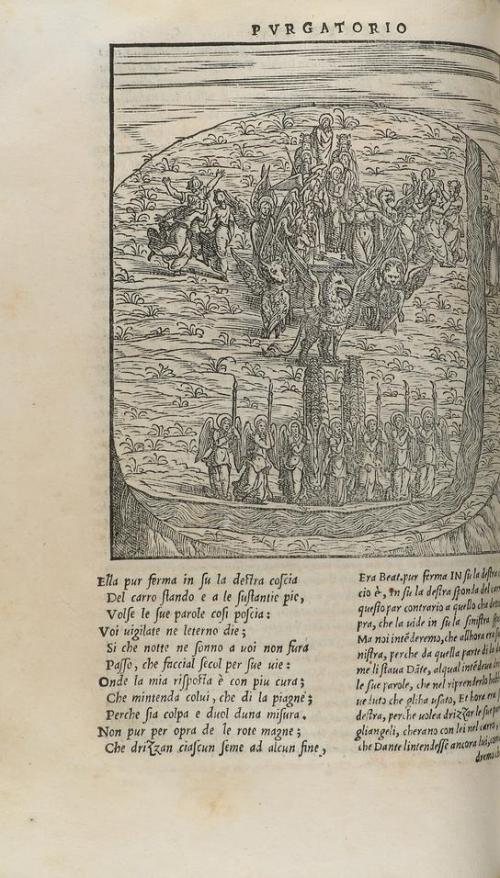 PVRGATORIO
Ella pur ferma in ſu la deſtra coſcia
Del carro ſtando e a le ſuſtantie pie,
Volſe le ſue parole coſi poſcia:
Voi uigilate ne leterno die;
Si che notte ne ſonno a uoi non fura
Paſſo, che faccial ſecol per ſue uie:
Onde la mia riſpoſta è con piu cura;
Che mintenda colui, che di la piagne;
Perche ſia colpa e duol duna miſura.
Non pur per opra de le rote magne;
Che driZZan ciaſcun ſeme ad alcun fine,
Era Beat. pur ferma IN ſu la deſtra
cio è, in ſu la deſtra ſponda del car
queſto par contrario a quello cha
pra, che la uide in ſu la ſiniſtra
Ma noi intēderemo, che allhora era
niſtra, perche da quella parte di la
me li ſtaua Dāte, alqual intēdeua
le ſue parole, che nel riprenderlo
ue tuto che gliha uſato, Et hora era
deſtra, perche uolea driZZar le ſue
gliangeli, cherano con lei nel carro,
che Dante lintendeſſe ancora lui,